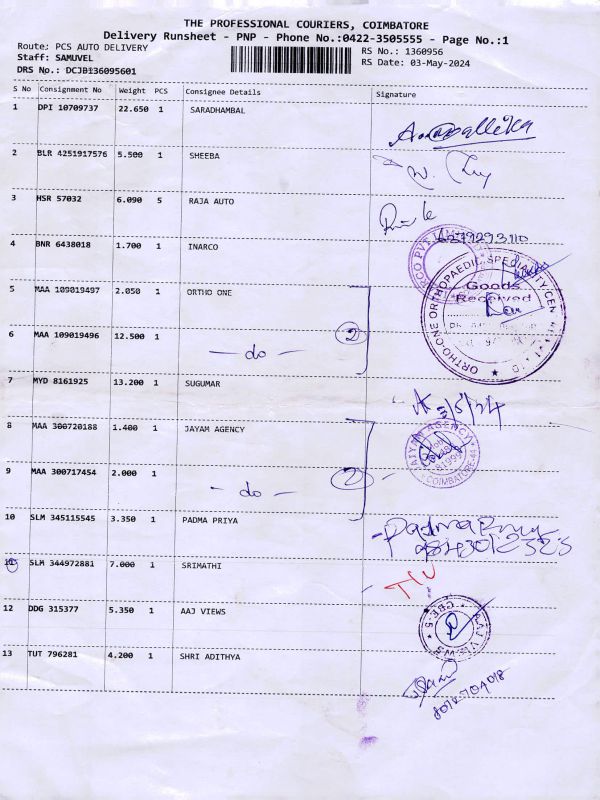 THE PROFESSIONAL COURIERS, COIMBATORE
Delivery Runsheet - PNP - Phone No.:0422-3505555 - Page No.:1
Route: PCS AUTO DELIVERY
Staff: SAMUVEL
DRS No.: DCJB136095601
RS No.: 1360956
RS Date: 03-May-2024
S No Consignment No Weight PCS Consignee Details Signature
1 DPI 10709737 22.650 1 SARADHAMBAL
2 BLR 4251917576 5.500 1 SHEEBA
3 HSR 57032 6.090 5 RAJA AUTO
4 BNR 6438018 1.700 1 INARCO
5 MAA 109019497 2.050 1 ORTHO ONE
6 MAA 109019496 12.500 1 — do — 2
Goods
Received
7 MYD 8161925 13.200 1 SUGUMAR
8 MAA 300720188 1.400 1 JAYAM AGENCY
9 MAA 300717454 2.000 1 — do — 2
10 SLM 345115545 3.350 1 PADMA PRIYA
11 SLM 344972881 7.000 1 SRIMATHI
12 DDG 315377 5.350 1 AAJ VIEWS
13 TUT 796281 4.200 1 SHRI ADITHYA